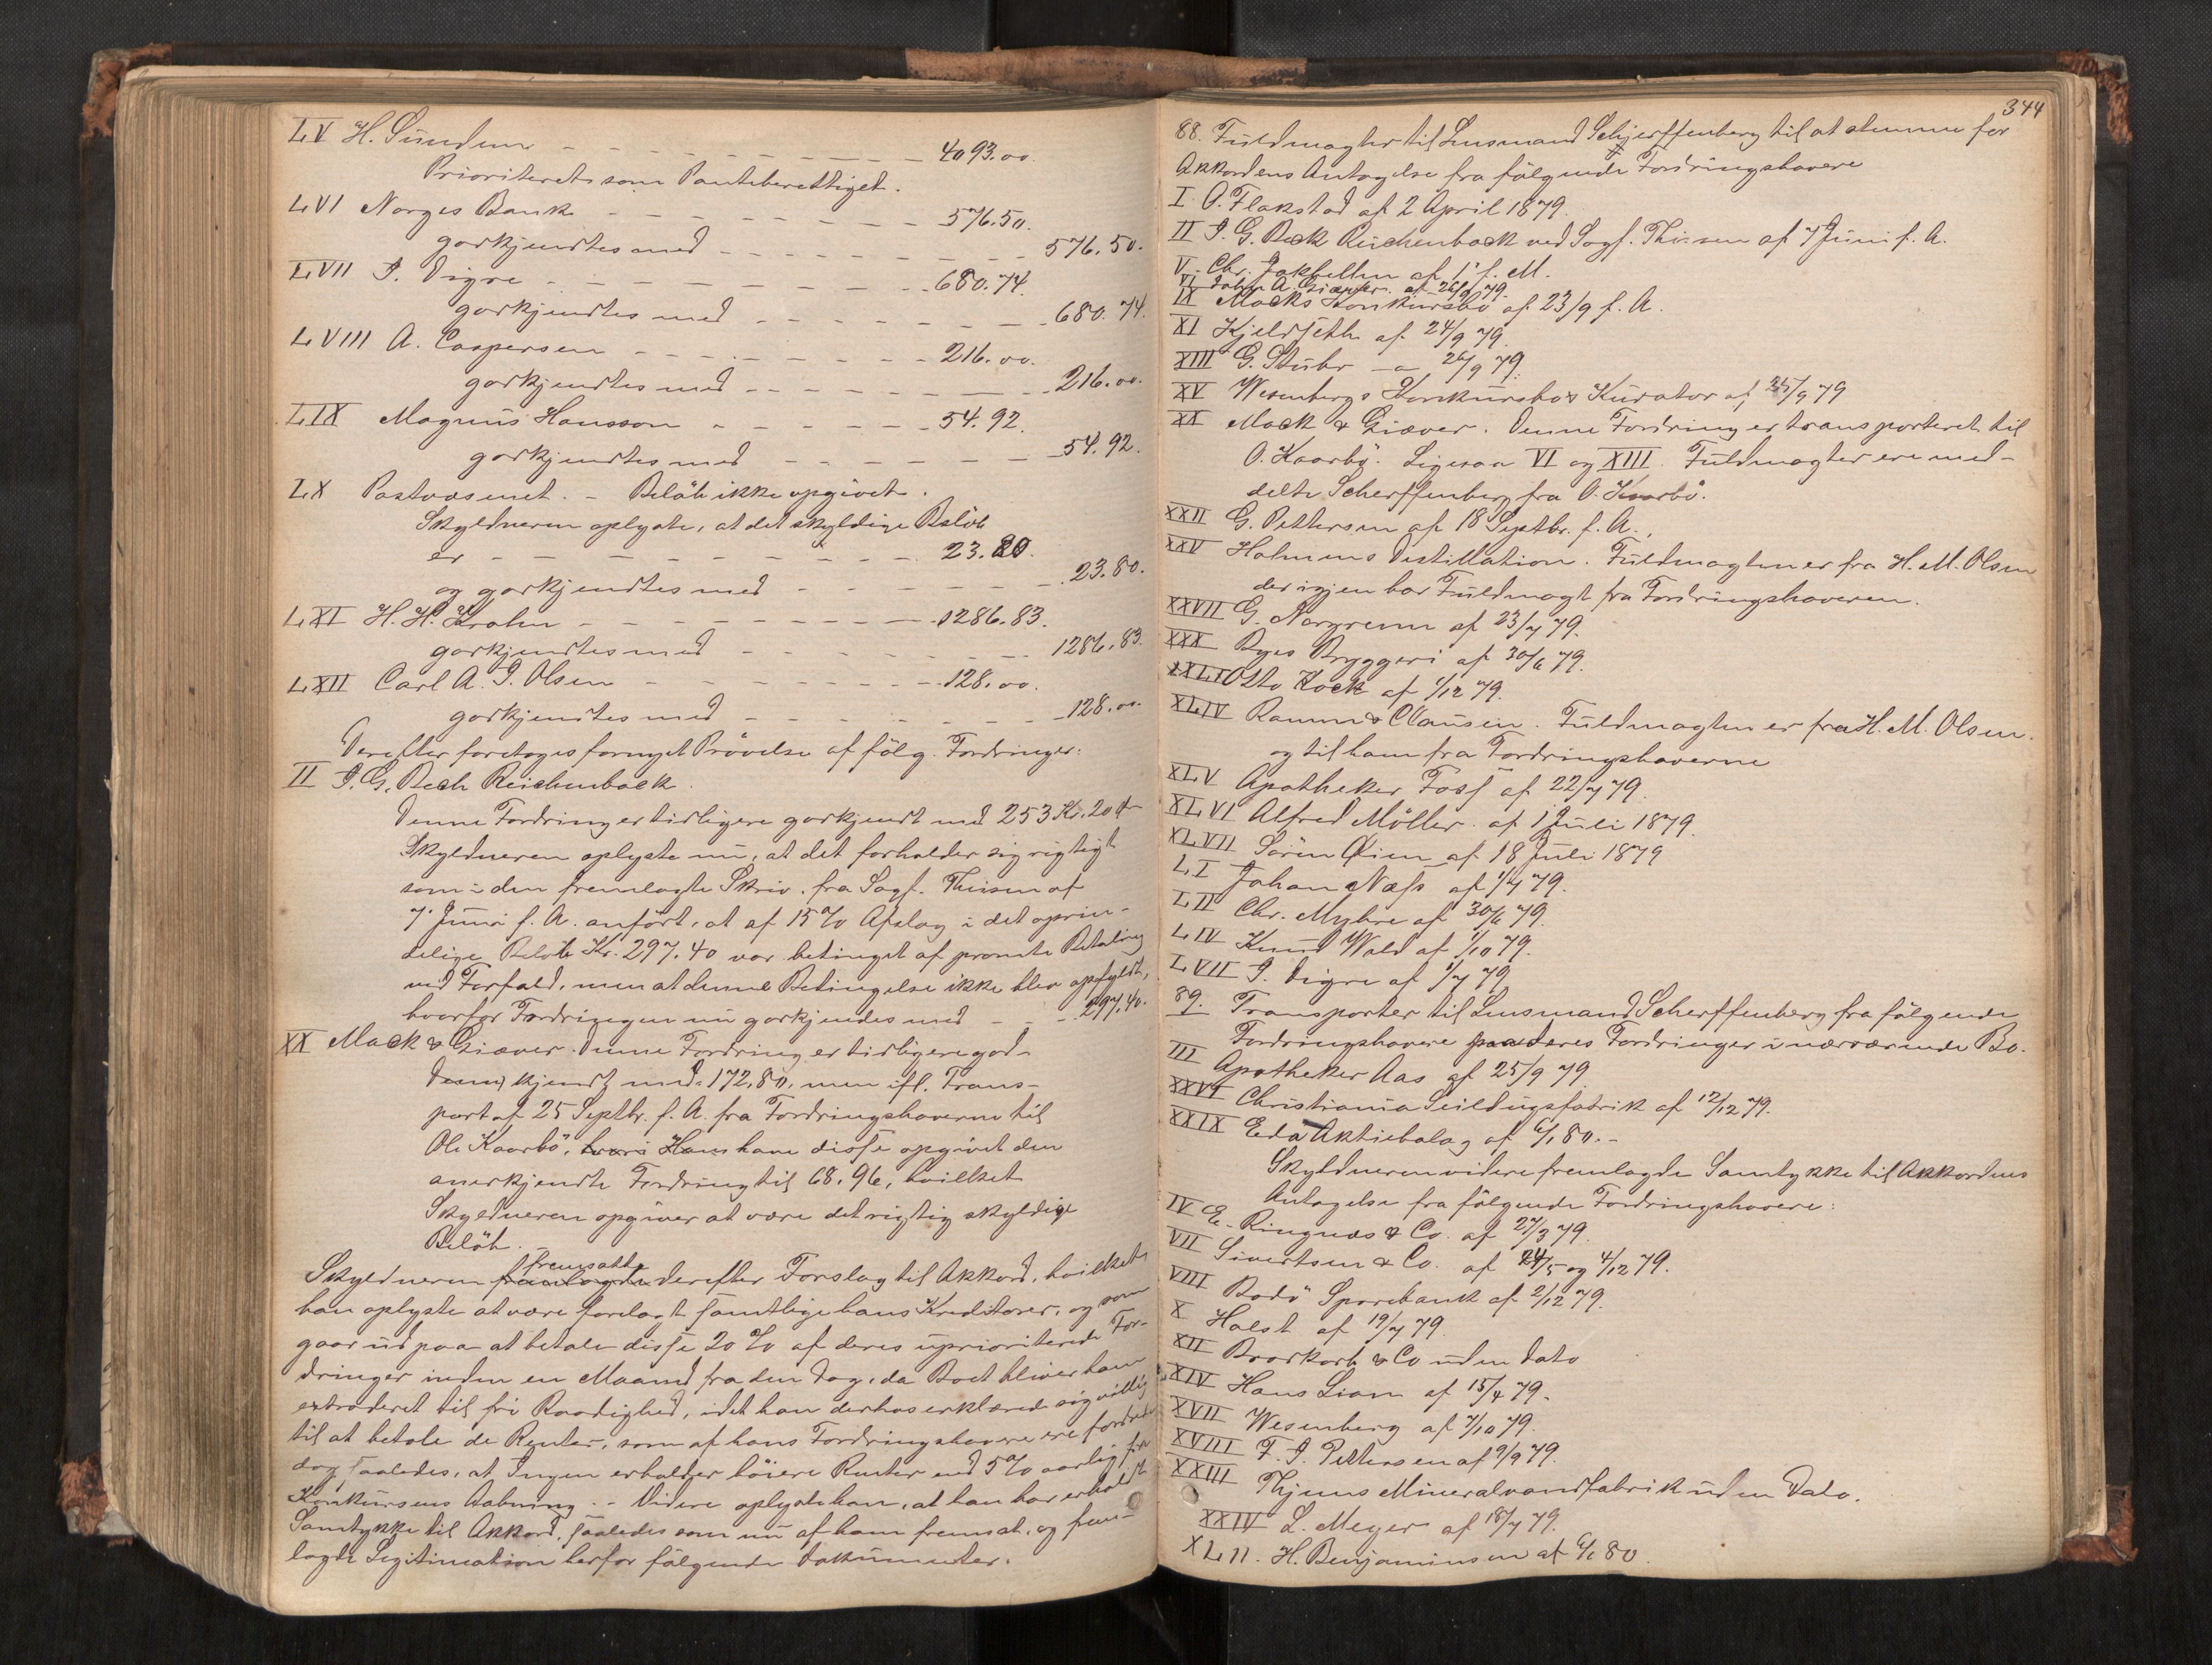 LV H. Sundem - - - - 4093.00.
Prioriteret som Panteberettiget.
LVI Norges Bank - - - - 576.50.
godkjendtes med - - - - 576.50.
LVII J. Vigre - - - - 680.74.
godkjendtes med - - - - 680.74.
LVIII A. Caspersen - - - - 216.00.
godkjendtes med - - - - 216.00.
LIX Magnus Hansson - - - - 54.92.
godkjendtes med - - - - 54.92.
LX Postvæsenet. - Beløb ikke opgivet.
Skyldneren oplyste, at det skyldige Beløb
er - - - - 23.80.
og godkjendtes med - - - - 23.80.
LXI H. H. Krohn - - - - 1286.83.
godkjendtes med - - - - 1286.83.
LXII Carl A. J. Olsen - - - - 128.00.
godkjendtes med - - - - 128.00.
Derefter foretoges fornyet Prøvelse af følg. Fordringer:
II J. G. Beck Reichenback.
Denne Fordring er tidligere godkjendt med 253 Kr. 20 Ø
Skyldneren oplyste nu, at det forholder sig rigtigt
som i den fremlagte Skriv. fra Sagf. Thiisen af
7. Juni f. A. anført, at af 15% Afslag i det oprin-
delige Beløb Kr. 297.40 var betinget af promte Betaling
ved Forfald, men at denne Betingelse ikke blev opfyldt,
hvorfor Fordringen nu godkjendes med - - - 297.40.
XX Mack & Giæver. Denne Fordring er tidligere god-
kjendt med 172,80, men ifl. Trans-
port af 25 Septbr. f. A. fra Fordringshaverne til
Ole Kaarbø, hvori Hans have disse opgivet den
anerkjendte Fordring til 68.96, hvilket
Skyldneren opgiver at være det rigtig skyldige
Beløb.
fremsatte
Skyldneren fremlagde derefter Forslag til Akkord, hvilket
han oplyste at være forelagt samtlige hans Kreditorer, og som
gaar ud paa at betale disse 20 % af deres uprioriterede For-
dringer inden en Maaned fra den Dag, da Boet bliver ham
extraderet til fri Raadighed, idet han derhos erklærede sig villig
til at betale de Renter, som af hans Fordringshavere ere fordrede
dog saaledes, at Ingen erholder høiere Renter end 5% aarlig fra
Konkursens Aabning. - Videre oplyste han, at han har erholdt
Samtykke til Akkord, saaledes som nu af ham fremsat, og frem-
lagde Legitimation herfor følgende Dokumenter.
344
88. Fuldmagter til Lensmand Schjerffenberg til at stemme for
Akkordens Antagelse fra følgende Fordringshavere
I O. Flakstad af 2 April 1879.
II J. G. Beck Reichenback ved Sagf. Thiisen af 7 Juni f. A.
V. Chr. Jakhelln af 1' f. M.
VI John A. Giæver. af 26/9 79.
IX Macks Konkursbo af 23/9 f. A.
XI Kjeldseth af 24/9 79.
XIII G. Stuhr - a 26/9 79.
XV Wesenbergs Konkursbos Kurator af 25/9 79
XX Mack & Giæver. Denne Fordring er transporteret til
O. Kaarbø. Ligesaa VI og XIII. Fuldmagter ere med-
delte Scherffenberg fra O. Kaarbø.
XXII G. Pettersen af 18 Septbr. f. A.
XXV Holmens Distillation. Fuldmagten er fra H. M. Olsen
der igjen har Fuldmagt fra Fordringshaveren.
XXVII G. Norgrenn af 23/7 79.
XXX Byes Bryggeri af 30/6 79.
XLI Otto Kock af 1/12 79.
XLIV Ramm & Clausen. Fuldmagten er fra H. M. Olsen.
og til ham fra Fordringshaverne
XLV Apotheker Foss af 22/7 79.
XLVI Alfred Møller af 1 Juli 1879.
XLVII Søren Øien af 18 Juli 1879
LI Johan Næss af 1/7 79.
LII Chr. Myhre af 30/6 79.
LIV Knud Wold af 1/10 79.
LVII J. Vigre af 1/7 79
89. Transporter til Lensmand Scherffenberg fra følgende
Fordringshavere paa deres Fordringer i nærværende Bo.
III Apotheker Aas af 25/9 79
XXVI Christiania Seildugsfabrik af 12/12 79.
XXIX Eda Aktiebolag af 6/1 80. -
Skyldneren videre fremlagde Samtykke til Akkordens
Antagelse fra følgende Fordringshavere:
IV E. Ringnæs & Co. af 27/3 79.
VII Sivertsen & Co. af 24/5 og 4/12 79.
VIII Bodø Sparebank af 2/12 79.
X Holst af 19/7 79.
XII Brodkorb & Co uden Dato
XIV Hans Liam af 15/4 79.
XVII Wesenberg af 7/10 79.
XVIII F. J. Pettersen af 9/9 79.
XXIII Thjuns Mineralvandfabrik uden Dato.
XXIV L. Meyer af 18/7 79.
XLII. H. Benjaminsen af 6/1 80.